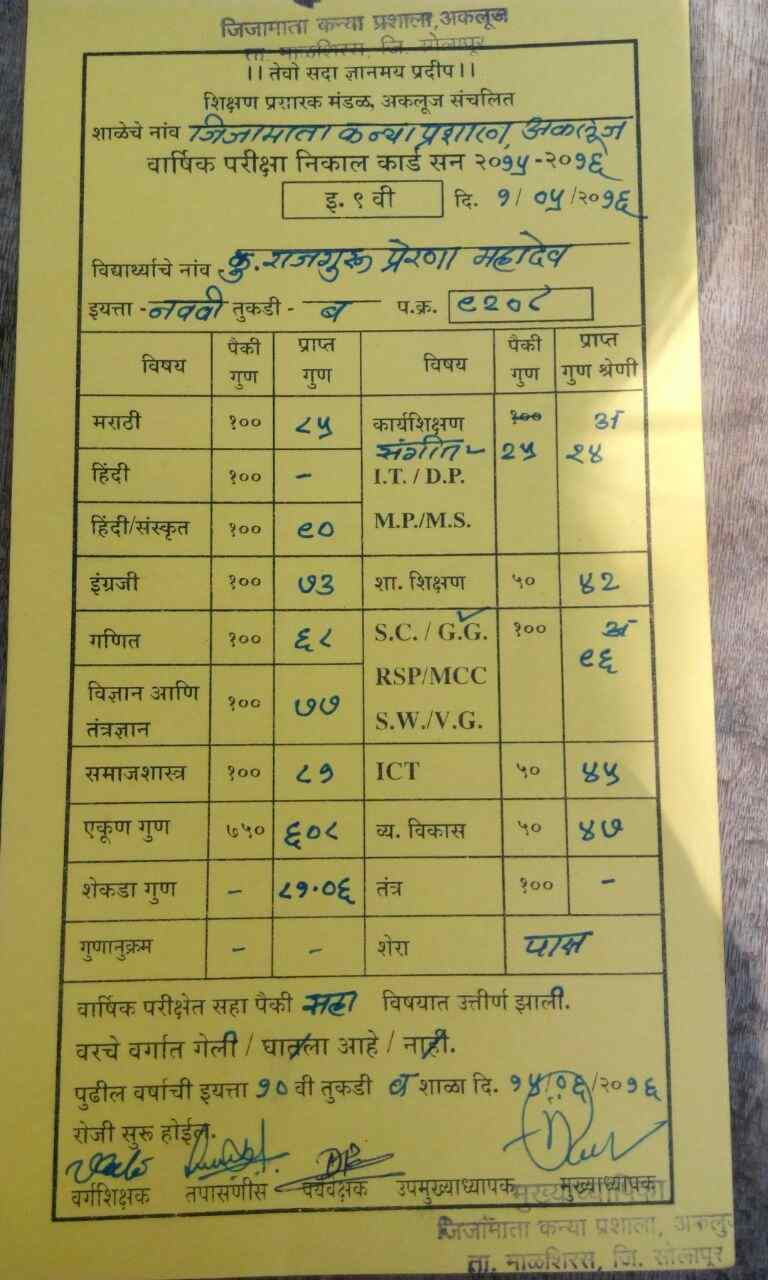 जिजामाता कन्या प्रशाला, अकलूज
ता. माळशिरस, जि. सोलापूर
।। तेवो सदा ज्ञानमय प्रदीप।।
शिक्षण प्रसारक मंडळ, अकलूज संचलित
शाळेचे नांव जिजामाता कन्या प्रशाला, अकलूज
वार्षिक परीक्षा निकाल कार्ड सन २०१५-२०१६
इ. ९ वी दि. १/ ०५/२०१६
विद्यार्थ्याचे नांव कु. राजगुरू प्रेरणा महादेव
इयत्ता - नववी तुकडी - ब प.क्र. ९२०८
विषय पैकी गुण प्राप्त गुण विषय पैकी गुण प्राप्त गुण श्रेणी
मराठी १०० ८५ कार्यशिक्षण १०० अ
संगीत - २५ २४
हिंदी १०० - I.T. / D.P.
हिंदी/संस्कृत १०० ९० M.P./M.S.
इंग्रजी १०० ७३ शा. शिक्षण ५० ४२
गणित १०० ६८ S.C. / G.G. १०० अ
९६
RSP/MCC
विज्ञान आणि तंत्रज्ञान १०० ७७ S.W./V.G.
समाजशास्त्र १०० ८१ ICT ५० ४५
एकूण गुण ७५० ६०८ व्य. विकास ५० ४७
शेकडा गुण - ८१.०६ तंत्र १०० -
गुणानुक्रम - - शेरा पास
वार्षिक परीक्षेत सहा पैकी सहा विषयात उत्तीर्ण झाली.
वरचे वर्गात गेली / घातला आहे / नाही.
पुढील वर्षाची इयत्ता १० वी तुकडी ब शाळा दि. १५/०६/२०१६
रोजी सुरू होईल.
वर्गशिक्षक तपासणीस पर्यवेक्षक उपमुख्याध्यापक मुख्याध्यापक
मुख्याध्यापिका
जिजामाता कन्या प्रशाला, अकलुज
ता. माळशिरस, जि. सोलापूर